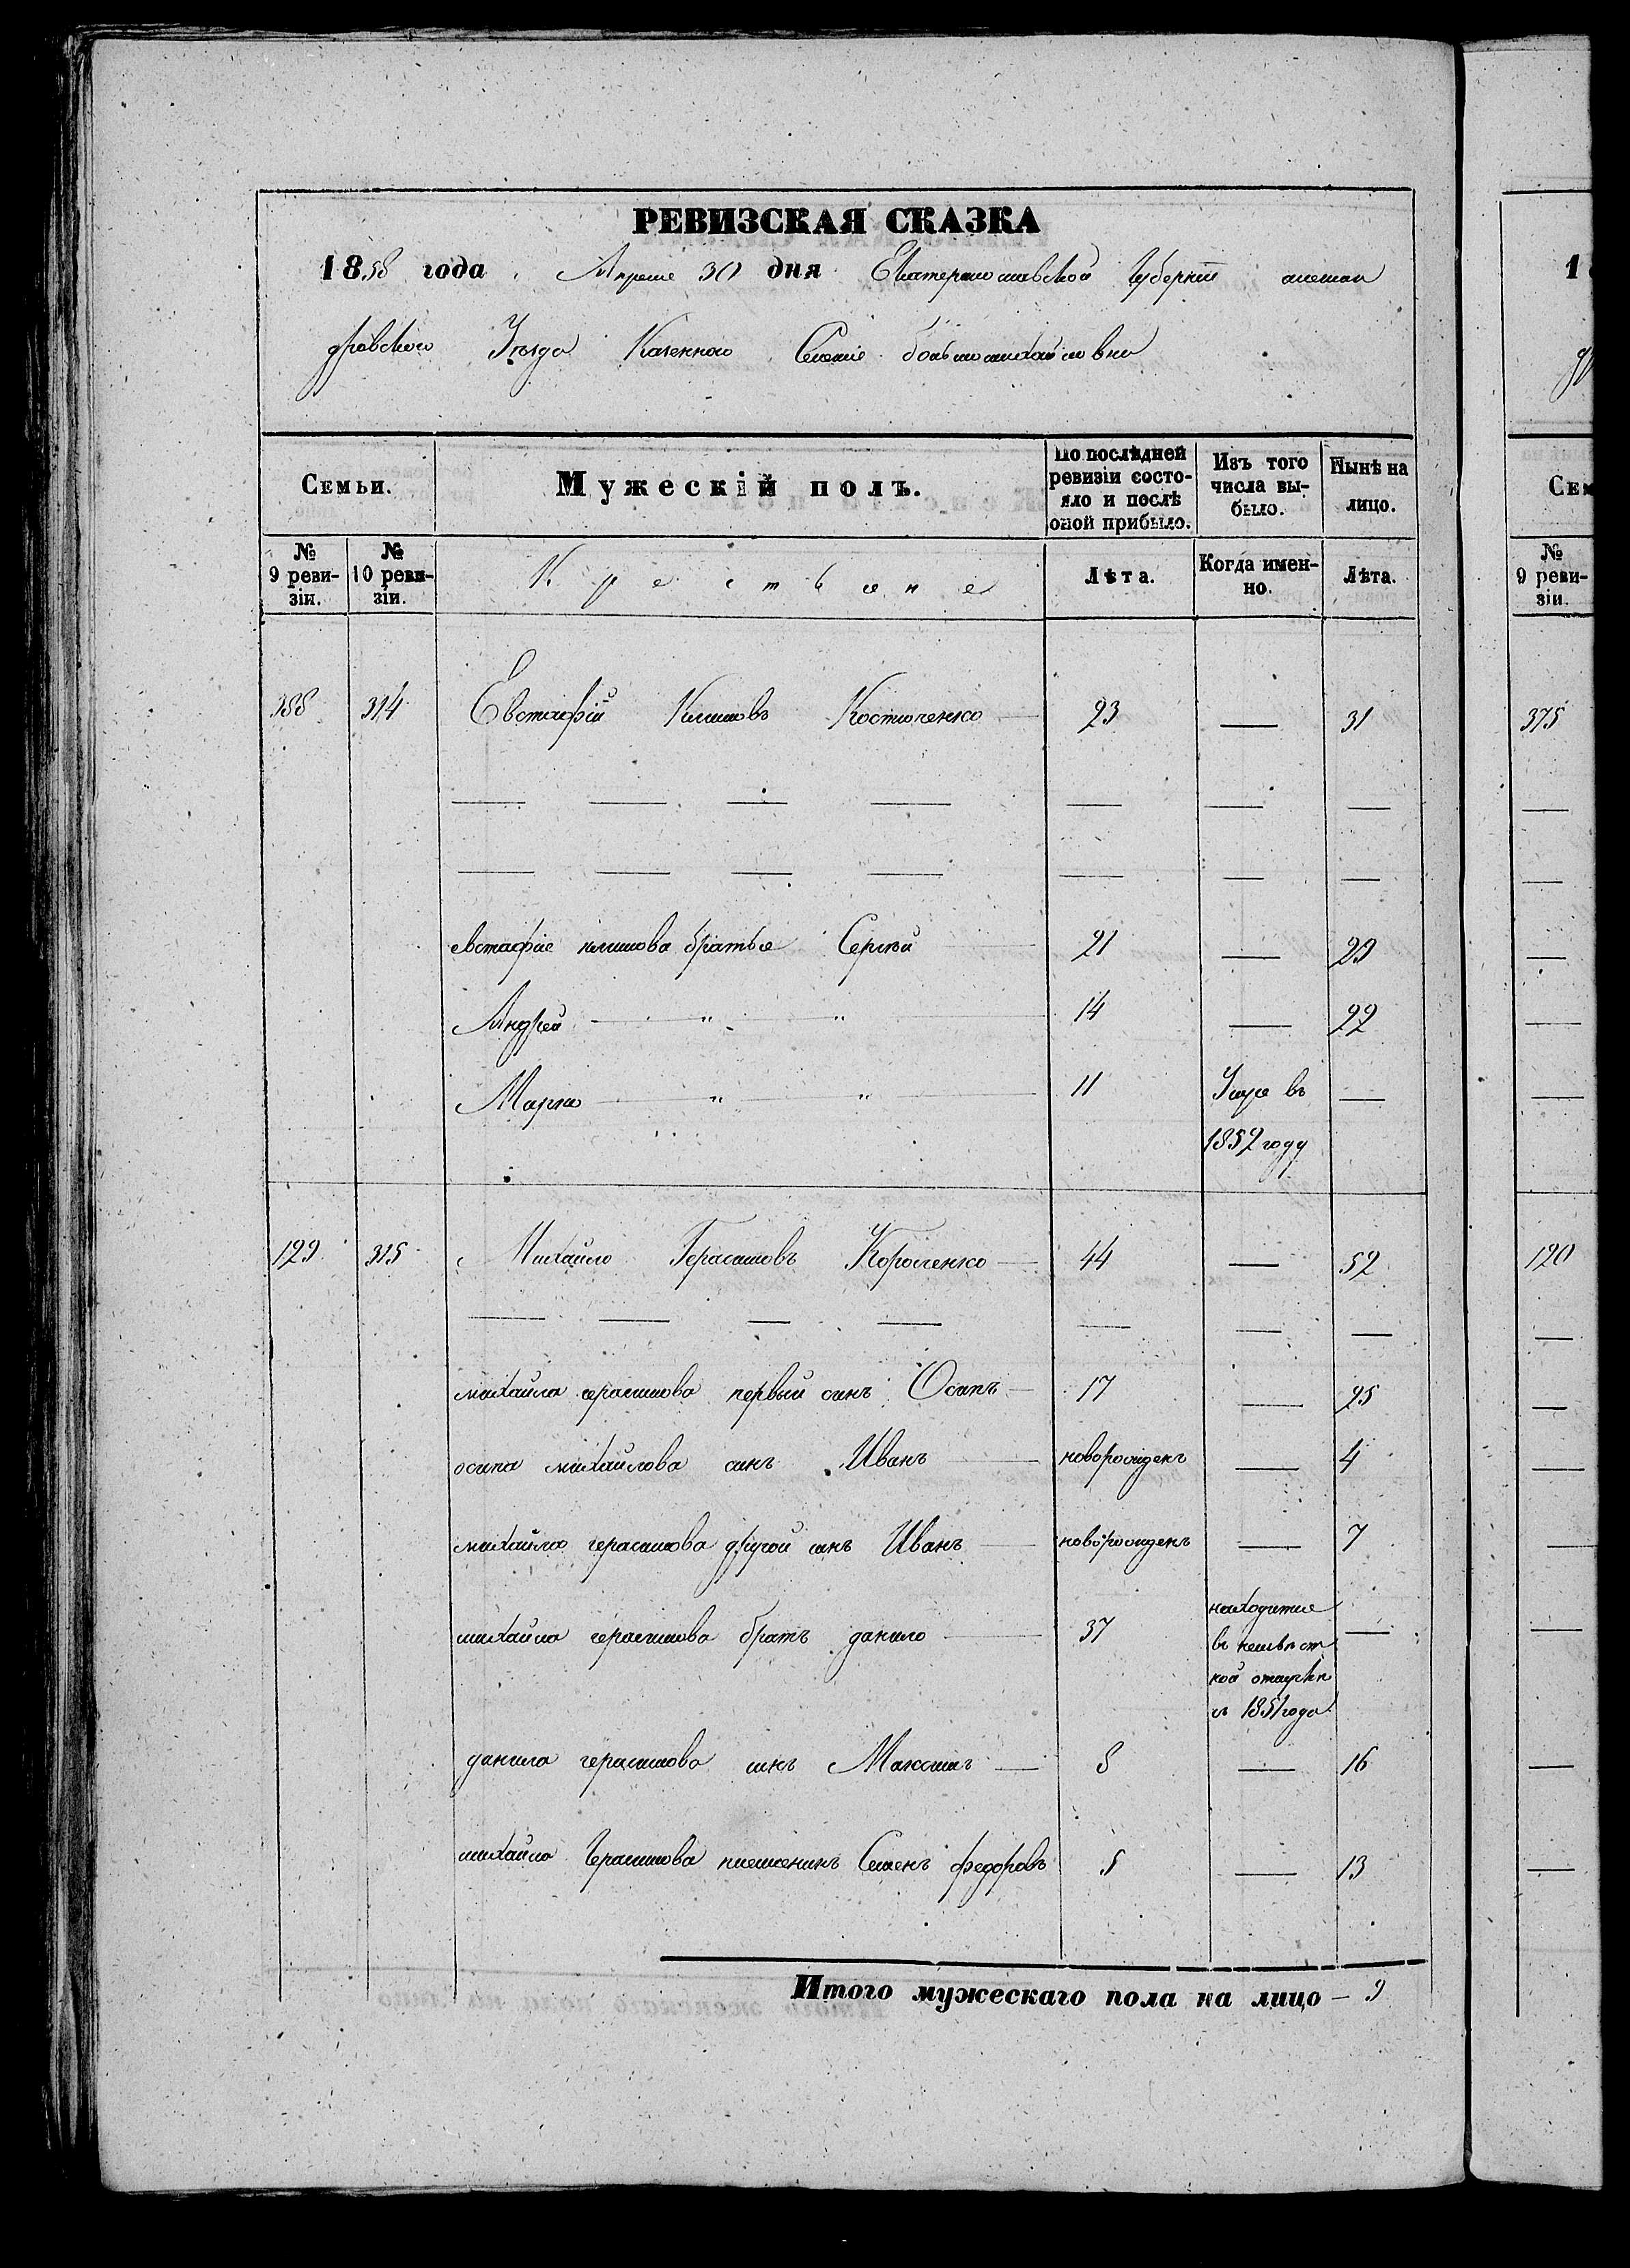 РЕВИЗСКАЯ СКАЗКА
1858 года Апреля 30 дня Екатеринославской Губерніи александ
ровского Уезда Казенного Селенія большомихайловки
Семьи.
Мужескій полъ.
По послѣдней ревизіи состояло и послѣ оной прибыло.
Изъ того числа выбыло.
Нынѣ на лицо.
№ 9 ревизіи.
№ 10 ревизіи.
Крестьяне
Лѣта.
Когда именно.
Лѣта.
388 314 Евстафій Климовъ Костюченко 23 — 31
евстафіе климова братья Сергѣй 21 — 29
Андрей — " — " — 14 — 22
Марко — " — " — 11 Умре въ —
1852 году
129 315 Михайло Герасимовъ Короленко 44 — 52
михайла герасимова первый синъ Осипъ 17 — 25
осипа михайлова синъ Иванъ новорожденъ — 4
михайла герасимова другой синъ Иванъ новорожденъ — 7
михайла герасимова братъ данило 37 находитсе —
в неизвѣст
ной отлучки
съ 1851 года
данила герасимова синъ Максимъ 8 — 16
михайла Герасимова племенникъ Семенъ федоровъ 5 — 13
Итого мужескаго пола на лицо — 9
1
Сем
№ 9 ревизіи.
375
120